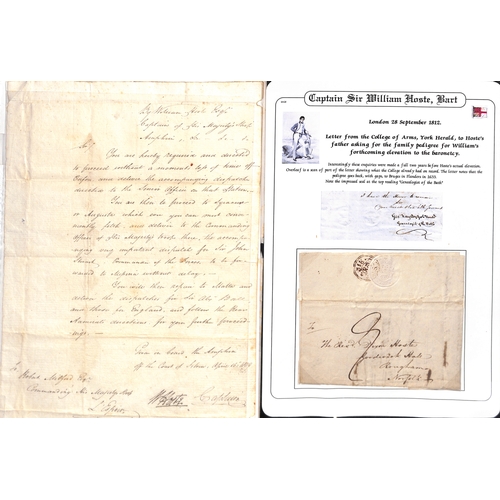 By William Hoste Esqr
Captain of His Majesty's Ship
Amphion &c &c
You are hereby required and directed
to proceed without a moment's loss of time off
and deliver the accompanying dispatches
to the Senior Officer on that Station
You are then to proceed to Syracuse
or Augusta which ever you can most
fetch, and deliver to the Commanding
Officer of His Majesty's troops there, the accompanying
important dispatch for Sir John
Stuart, Commander of the Forces to be forwarded
to Messina without delay
You will then repair to Malta and
deliver the dispatches for Sir Alexr Ball
and those for England, and follow the Rear
Admiral's directions for your further proceedings
Given on board the Amphion
off the Coast of Istria April
To Robert Mitford Esqr
Commanding His Majesty's Sloop
L'Espoir
W Hoste Captain
Captain Sir William Hoste, Bart
London 28 September 1812.
Letter from the College of Arms, York Herald, to Hoste's
father asking for the family pedigree for William's
forthcoming elevation to the baronetcy.
Interestingly these enquiries were made a full two years before Hoste's actual elevation.
Overleaf is a part of the letter showing what the College already had on record. The letter notes that the
pedigree goes back, with gaps, to Bruges in Flanders in 1633.
Note the impressed seal at the top reading "Genealogist of the Bath"
I have the honor to be
Sir
Your most Obedt hble Servant
Genealogist of the Bath
To
The Revd Dixon Hoste
Godwick Hall
Rougham
Norfolk